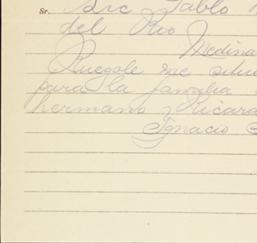 Sr. Src Pablo
del Rio
Medina
Ruegole me situe
para la familia
hermano, Ricard
Ignacio